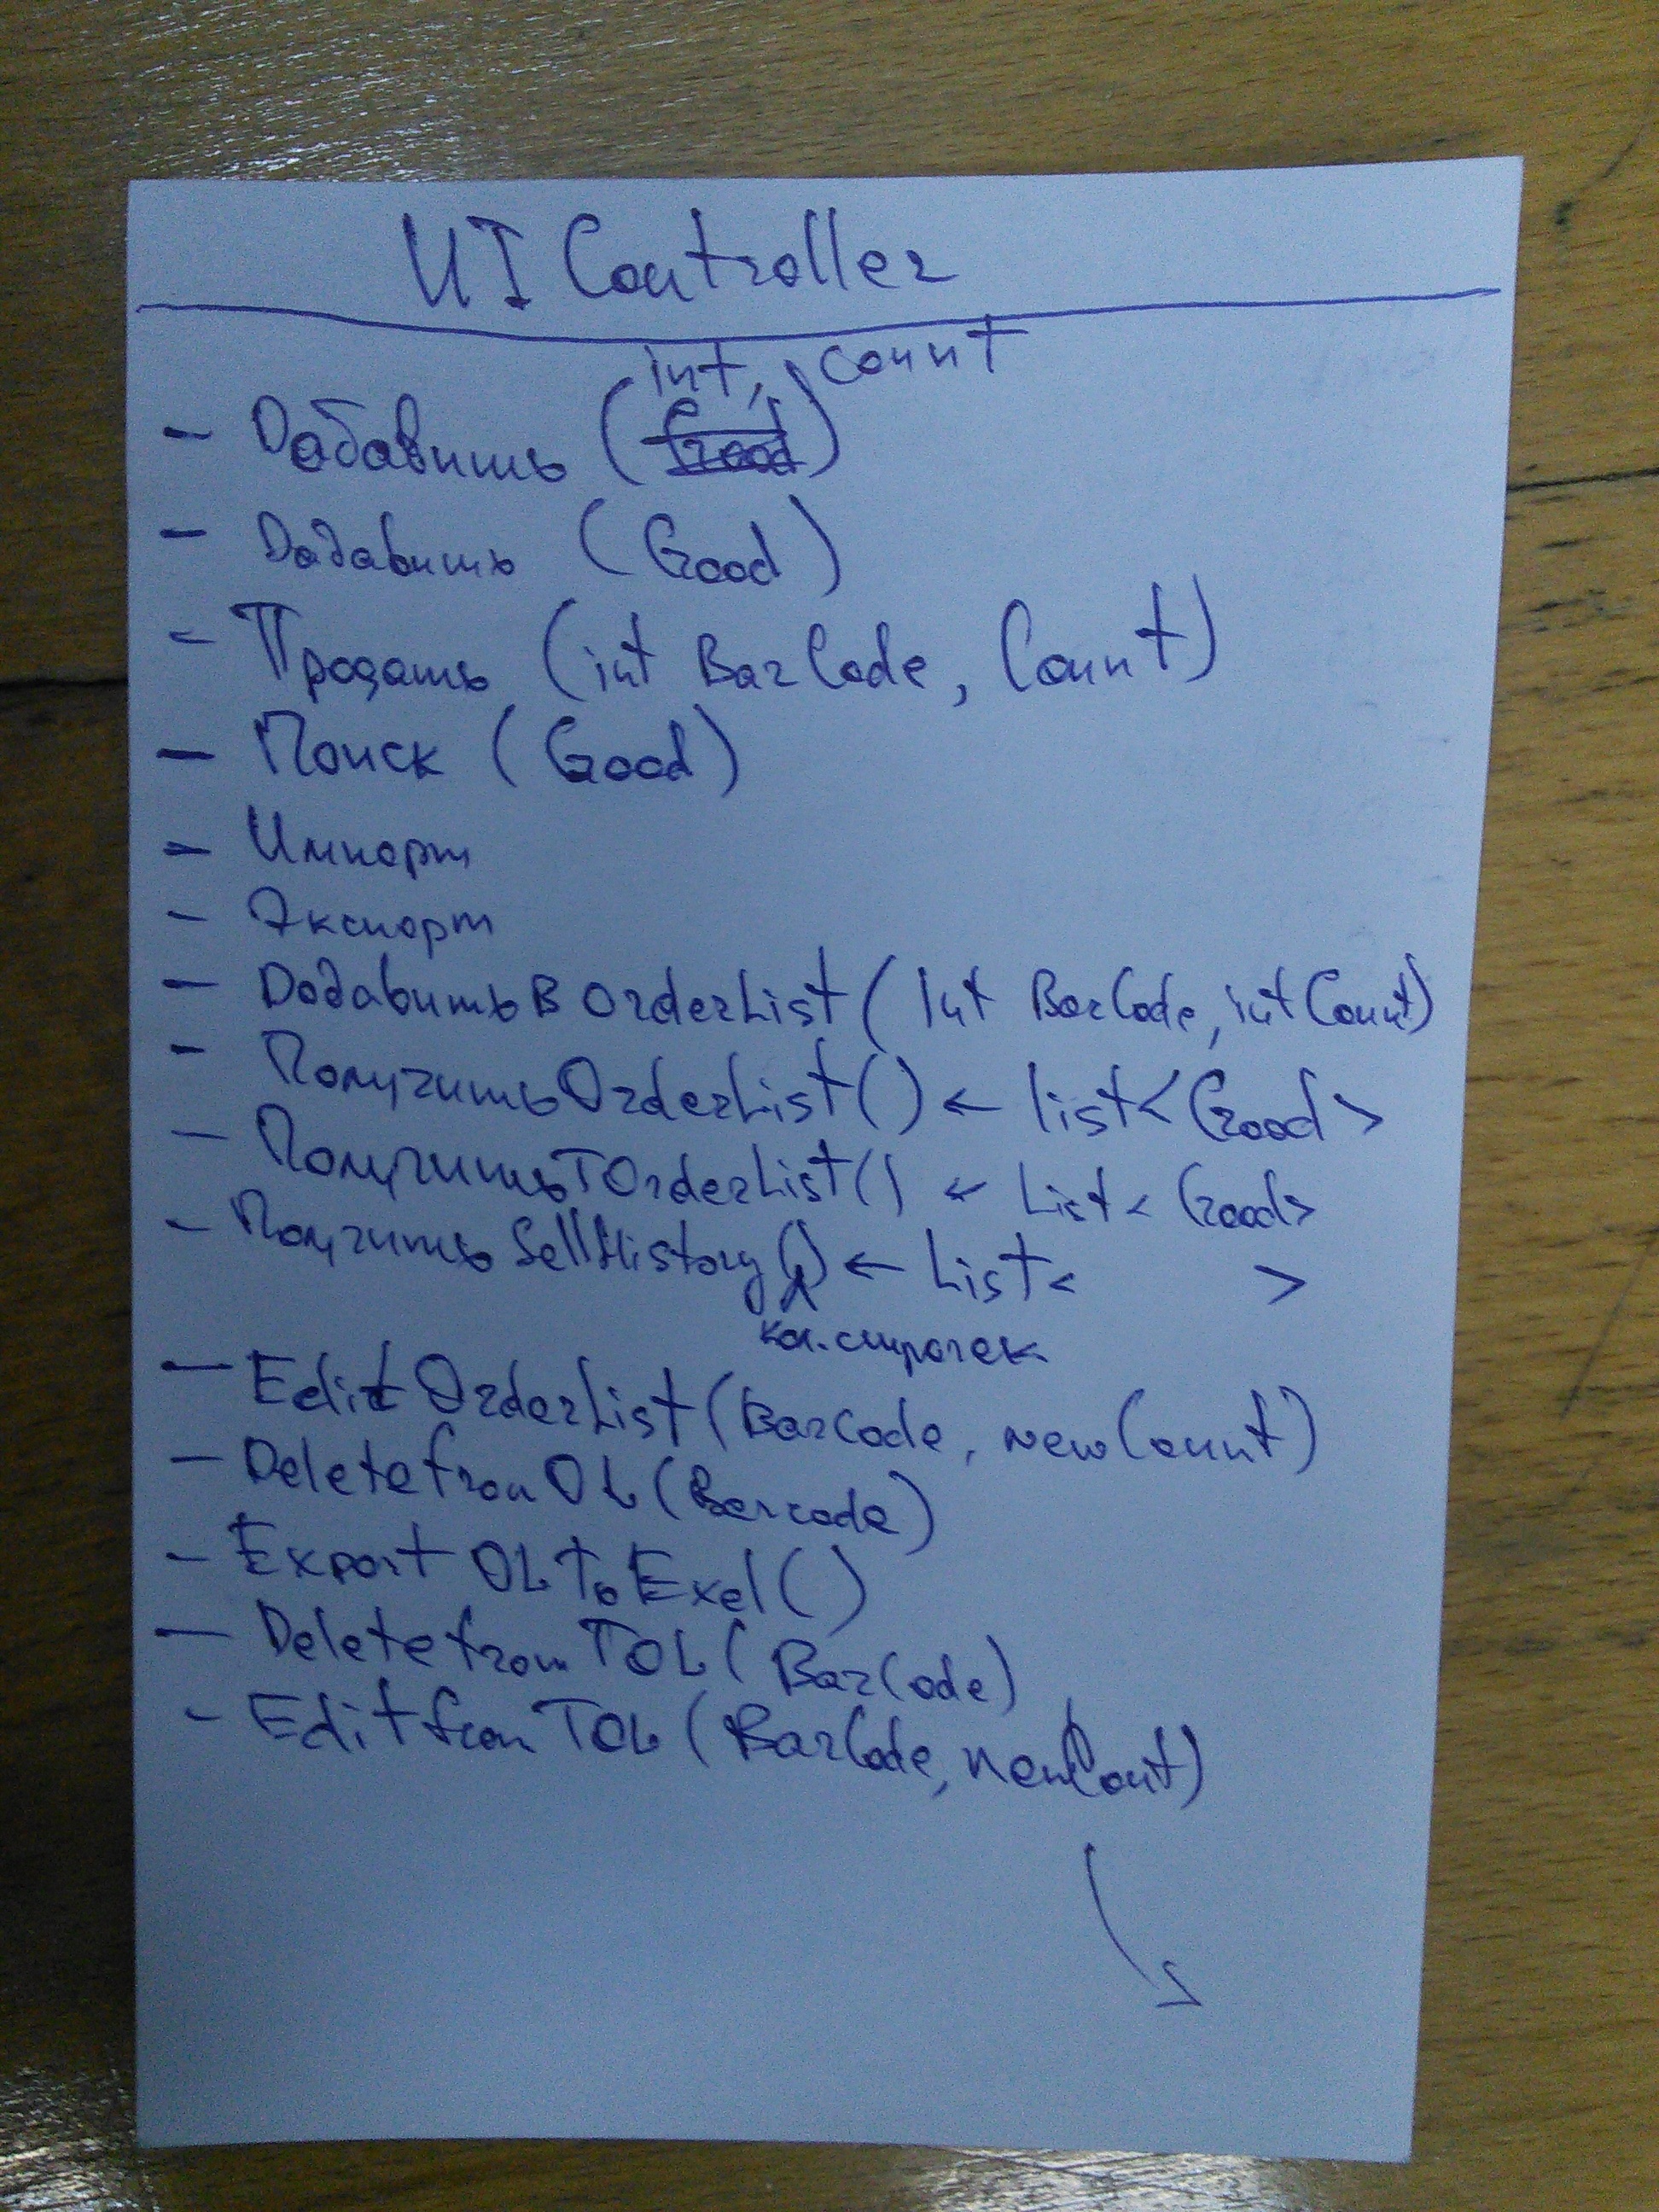 UI Controller
int, count
- Добавить (Good)
- Добавить (Good)
- Продать (int BarCode, Count)
- Поиск (Good)
- Импорт
- Экспорт
- ДобавитьВ OrderList (Int BarCode, int Count)
- ПолучитьOrderList() ← list<Good>
- ПолучитьTOrderList() ← List<Good>
- Получить SellHistory() ← List< >
кол. строчек
- Edit OrderList (Barcode, newCount)
- Delete from OL (Barcode)
- Export OL To Exel()
- Delete from TOL (BarCode)
- Edit from TOL (BarCode, newCount)